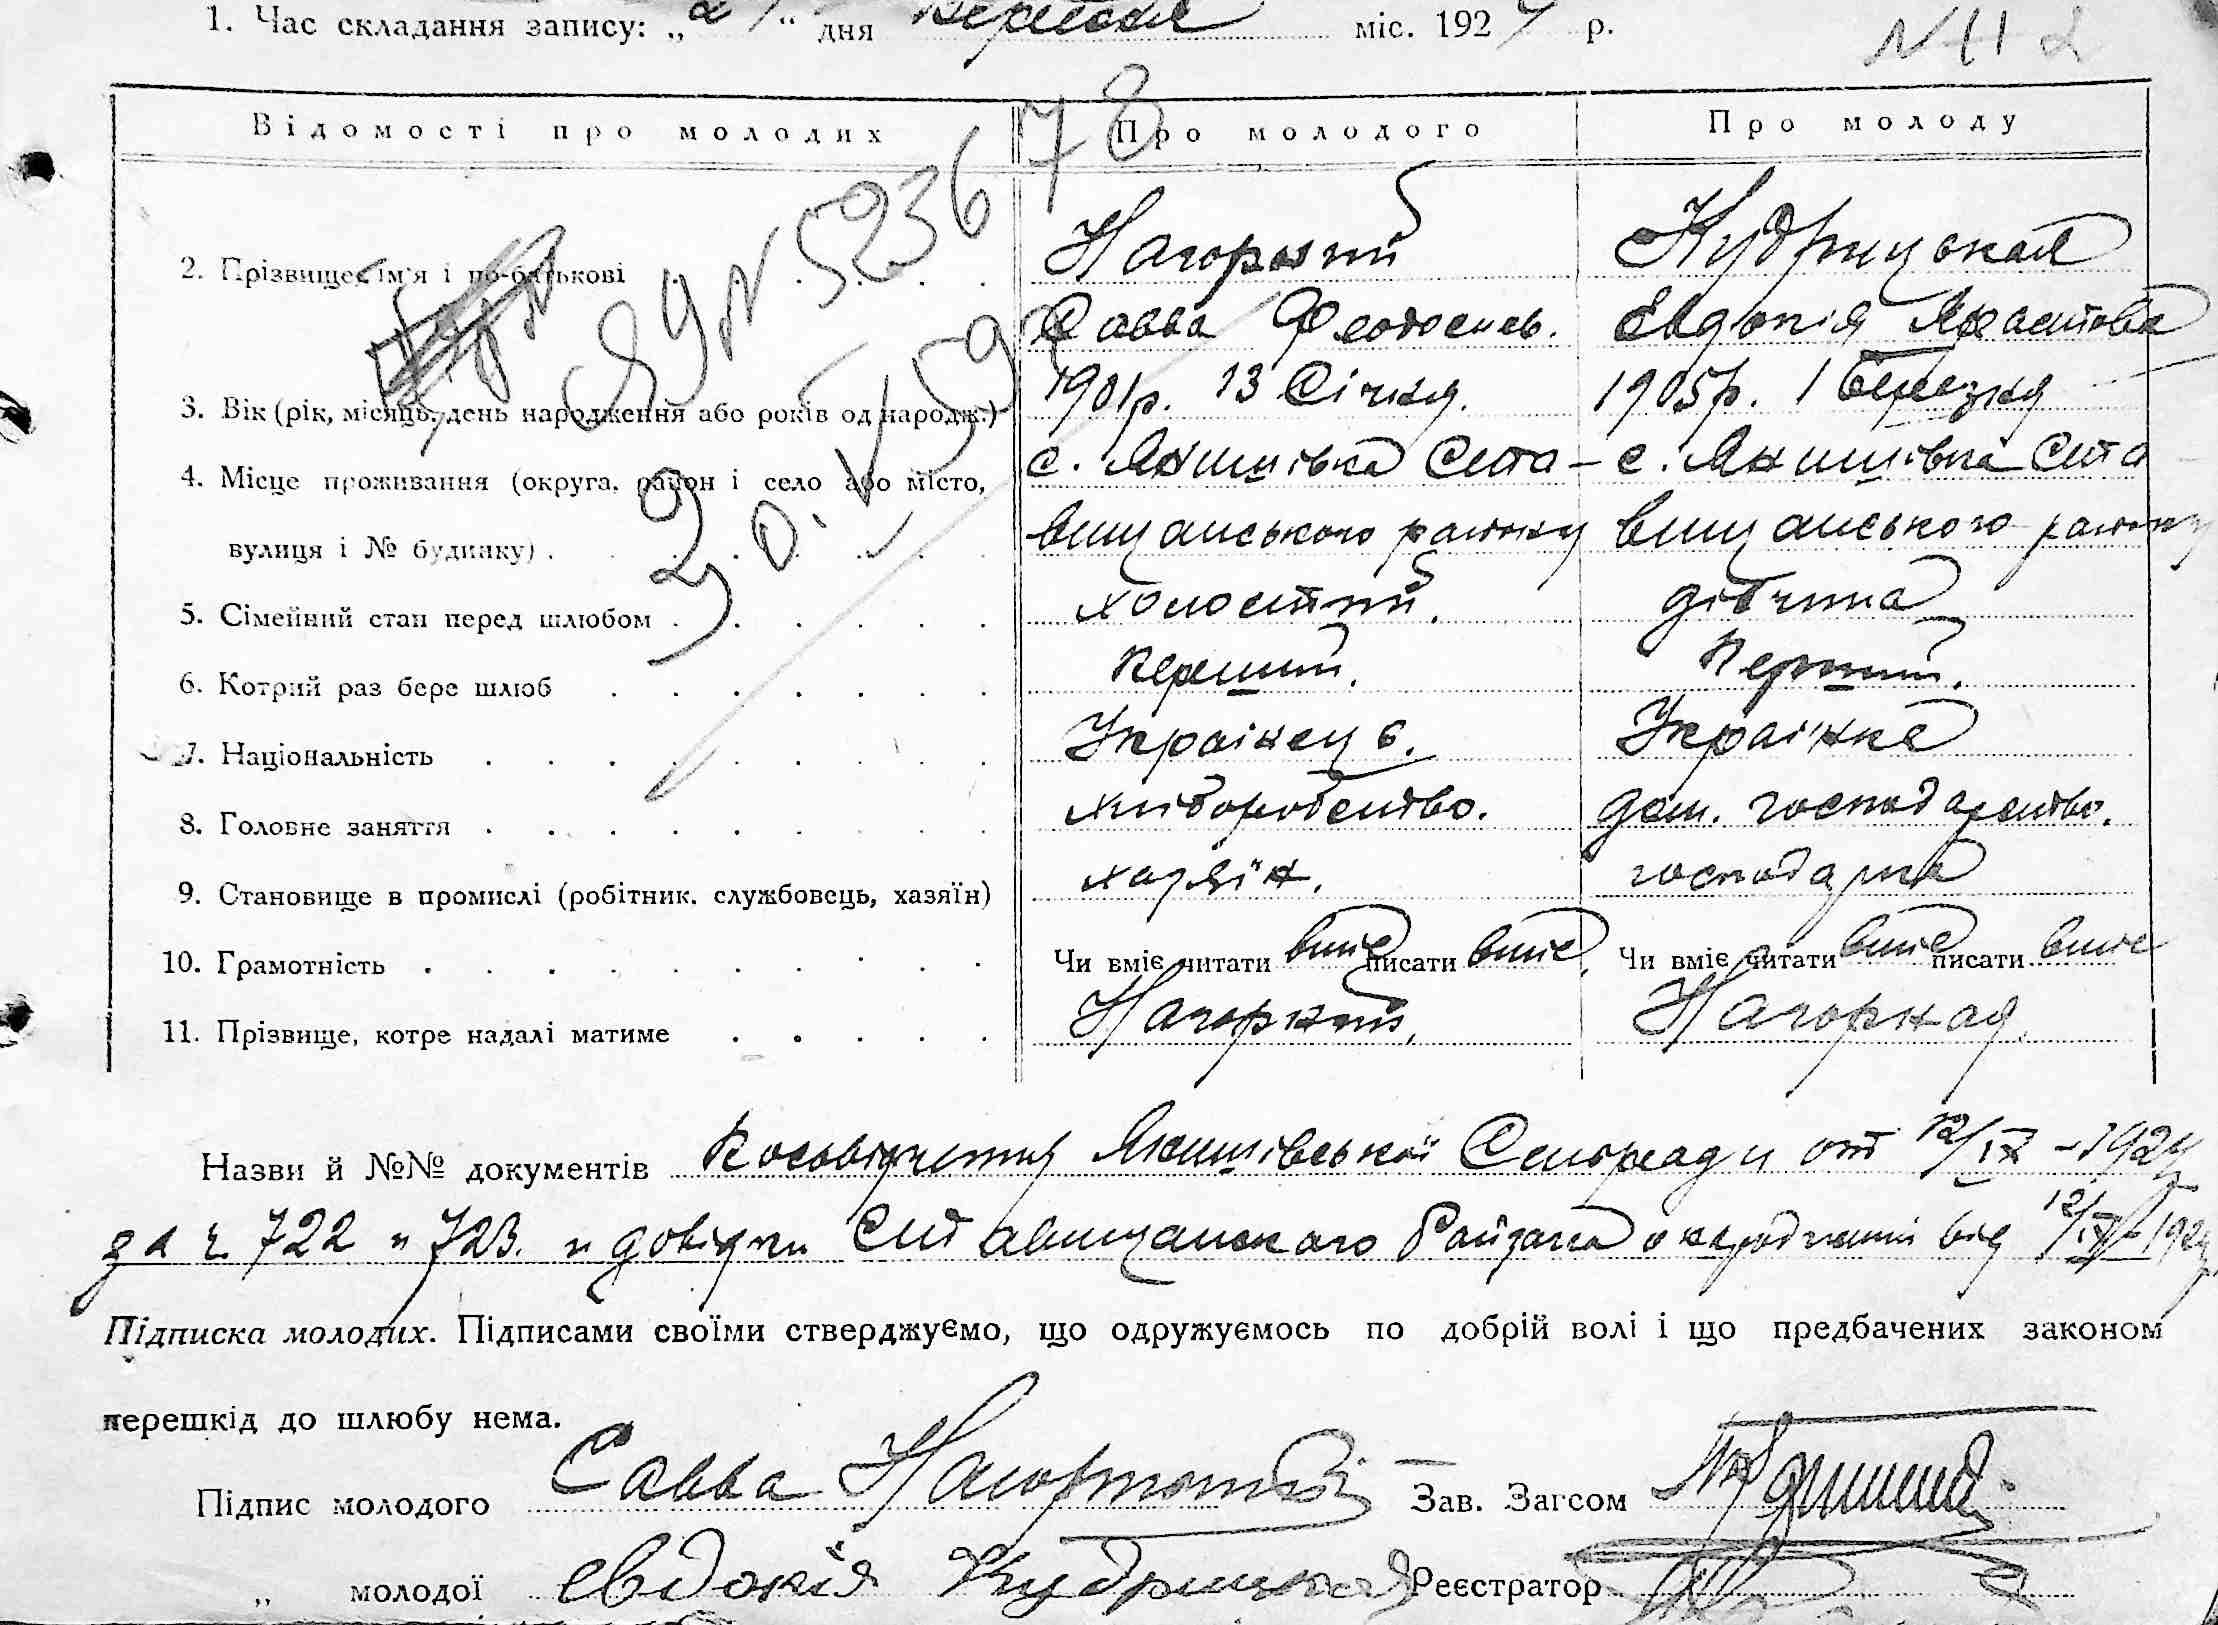 1. Час складання запису: „2 “ дня Вересня міс. 1924 р.
N 112
Відомості про молодих Про молодого Про молоду
78
2. Прізвище, ім'я і по-батькові Нагорний Кудрицькая
ЯЧ N 5236
Савва Феодосієв. Евдокія Анастова
3. Вік (рік, місяць, день народження або років од народж.) 1901р. 13 Січня. 1905р. 1 березня
20.V 59
4. Місце проживання (округа, район і село або місто, с. Якимівка Ста- с. Якимівка Ста
вулиця і № будинку) вищанського району вищанського району
5. Сімейний стан перед шлюбом холостий. дівчина
6. Котрий раз бере шлюб перший. перший.
7. Національність Українець. Українка
8. Головне заняття хліборобство. дом. господарство.
9. Становище в промислі (робітник, службовець, хазяїн) хазяїн. господарка
10. Грамотність Чи вміє читати вміє писати вміє. Чи вміє читати вміє писати вміє
11. Прізвище, котре надалі матиме Нагорний. Нагорная.
Назви й №№ документів Посвідчення Якимівської Сільради от 12/IX -1924
за ч. 722 и 723. и довідки Ставищанского Райзагса о народженні від 12/IX-1924
Підписка молодих. Підписами своїми стверджуємо, що одружуємось по добрій волі і що предбачених законом
перешкід до шлюбу нема.
Підпис молодого Савва Нагорний Зав. Загсом
„ молодої евдокія Кудрицькая Реєстратор